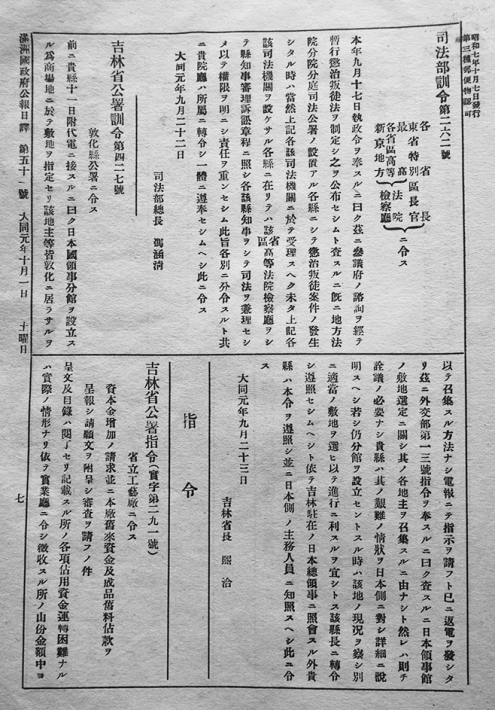 昭和七年十月七日發行
第三種郵便物認可
司法部訓令第二六二號
各省長
東省特別區長官
最高法院
各省區高等法院
新京地方檢察廳
ニ令ス
本年九月十七日執政令ヲ奉スルニ曰ク茲ニ參議府ノ諮詢ヲ經テ
暫行懲治叛徒法ヲ制定シ之ヲ公布セシムト査スルニ既ニ地方法
院分院分庭司法公署ノ設置アル各縣ニシテ懲治叛徒案件ノ發生
シタル時ハ當然上記各該司法機關ニ於テ受理スヘク未タ上記各
該司法機關ヲ設ケサル各縣ニ在リテハ該省區高等法院檢察廳ヲシ
テ縣知事審理訴訟章程ニ照シ各該縣知事ヲシテ司法ヲ兼理セシ
メ以テ權限ヲ明ニシ責任ヲ重ンセシム此旨各別ニ分令スルト共
ニ貴院廳ハ所屬ニ轉令シ一體ニ遵奉セシムヘシ此ニ令ス
大同元年九月二十二日
司法部總長 馮涵淸
吉林省公署訓令第四二七號
敦化縣公署ニ令ス
前ニ貴縣十一日附代電ニ接スルニ曰ク日本國領事分館ヲ設立ス
ル爲商場地ニ於テ敷地ヲ指定セリ該地主等皆敦化ニ居ラサルヲ
以テ召集スル方法ナシ電報ニテ指示ヲ請フト已ニ返電ヲ發シタ
リ茲ニ外交部第一三號指令ヲ奉スルニ曰ク査スルニ日本領事館
ノ敷地選定ニ關シ其ノ各地主ヲ召集スルニ由ナシト然レハ則チ
詮議ノ必要ナシ貴縣ハ其ノ艱難ノ情狀ヲ日本側ニ對シ詳細ニ說
明スヘシ若シ仍分館ヲ設立セントスル時ハ該地ノ現況ヲ察シ別
ニ適當ノ敷地ヲ選ヒ以テ進行ニ利スルヲ宜シトス該縣長ニ轉令
シ遵照セシムヘシト依テ吉林駐在ノ日本總領事ニ照會スル外貴
縣ハ本令ヲ遵照シ並ニ日本側ノ主務人員ニ知照スヘシ此ニ令
ス
大同元年九月二十三日
吉林省長 熙洽
指令
吉林省公署指令(實字第二九一號)
省立工藝廠ニ令ス
資本金增加ノ請求並ニ本廠舊來資金及成品舊料估款ヲ
呈報シ請願文ヲ附呈シ審査ヲ請フノ件
呈文及目錄ハ閱了セリ記載スル所ノ各項佔用資金運轉困難ナル
ハ實際ノ情形ナリ依テ實業廳ニ令シ徵收スル所ノ山份金額中ヨ
滿洲國政府公報日譯 第五十一號 大同元年十月一日 土曜日
七